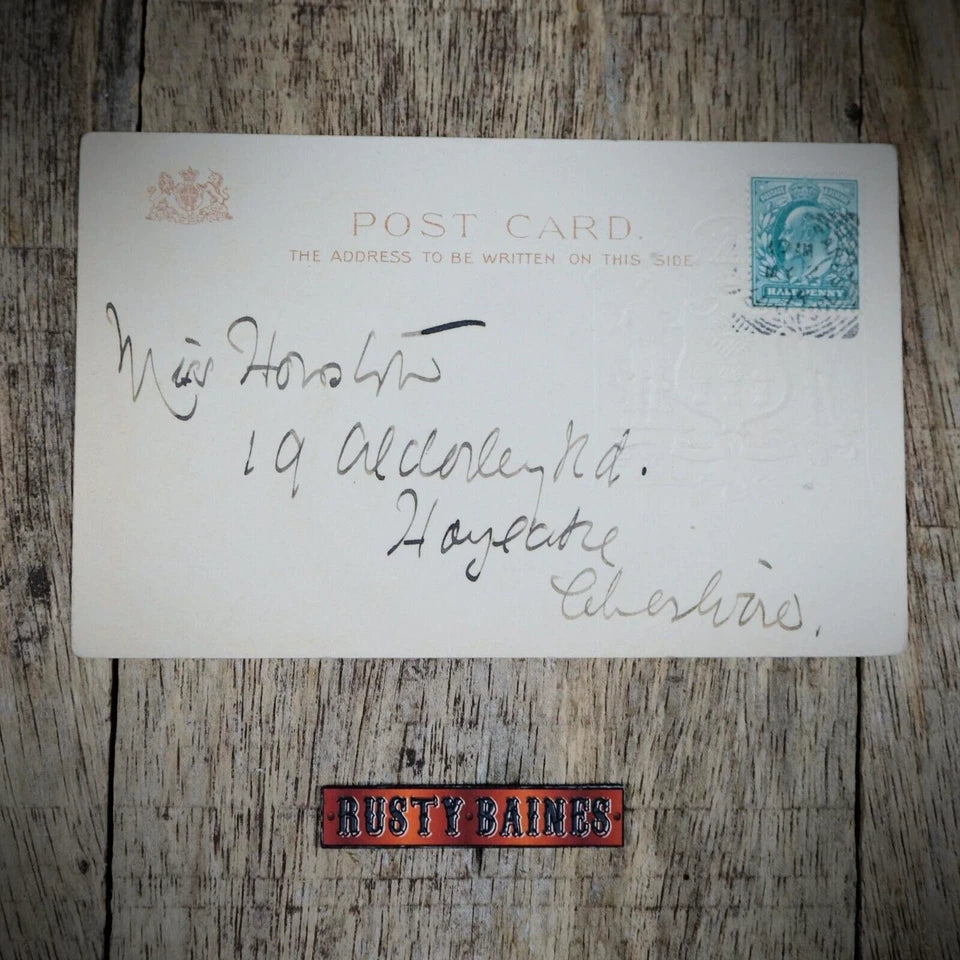 POST CARD.
THE ADDRESS TO BE WRITTEN ON THIS SIDE.
HALFPENNY
Miss
19 Alderley Rd.
Hoylake
Cheshire.
RUSTY BAINES